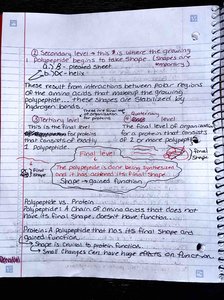 ② Secondary level → this is where the growing
polypeptide begins to take shape (shapes are
a.) β - pleated sheet
b.) α - helix
These result from interactions between polar regions
of the amino acids that makeup the growing
polypeptide... these shapes are stabilized by
hydrogen bonds.
③ Tertiary level
This is the final level
for a protein
that consists of only
1 polypeptide.
Quaternary
level
The final level of organization
for a protein that consists
of 2 or more polypeptides
Final level
final
shape
The polypeptide is done being synthesized
and it has achieved its final shape.
Shape → gained function
final
shape
Polypeptide vs. Protein
Polypeptide: A chain of amino acids that does not
have its final shape, doesn't have function...
Protein: A polypeptide that has its final shape and
gained function.
↳ Shape is crucial to protein function.
↳ Small changes can have huge effects on function.